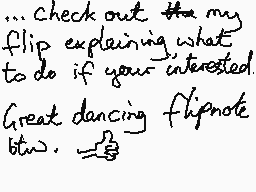 ... check out my
flip explaining what
to do if your interested.
Great dancing flipnote
btw.